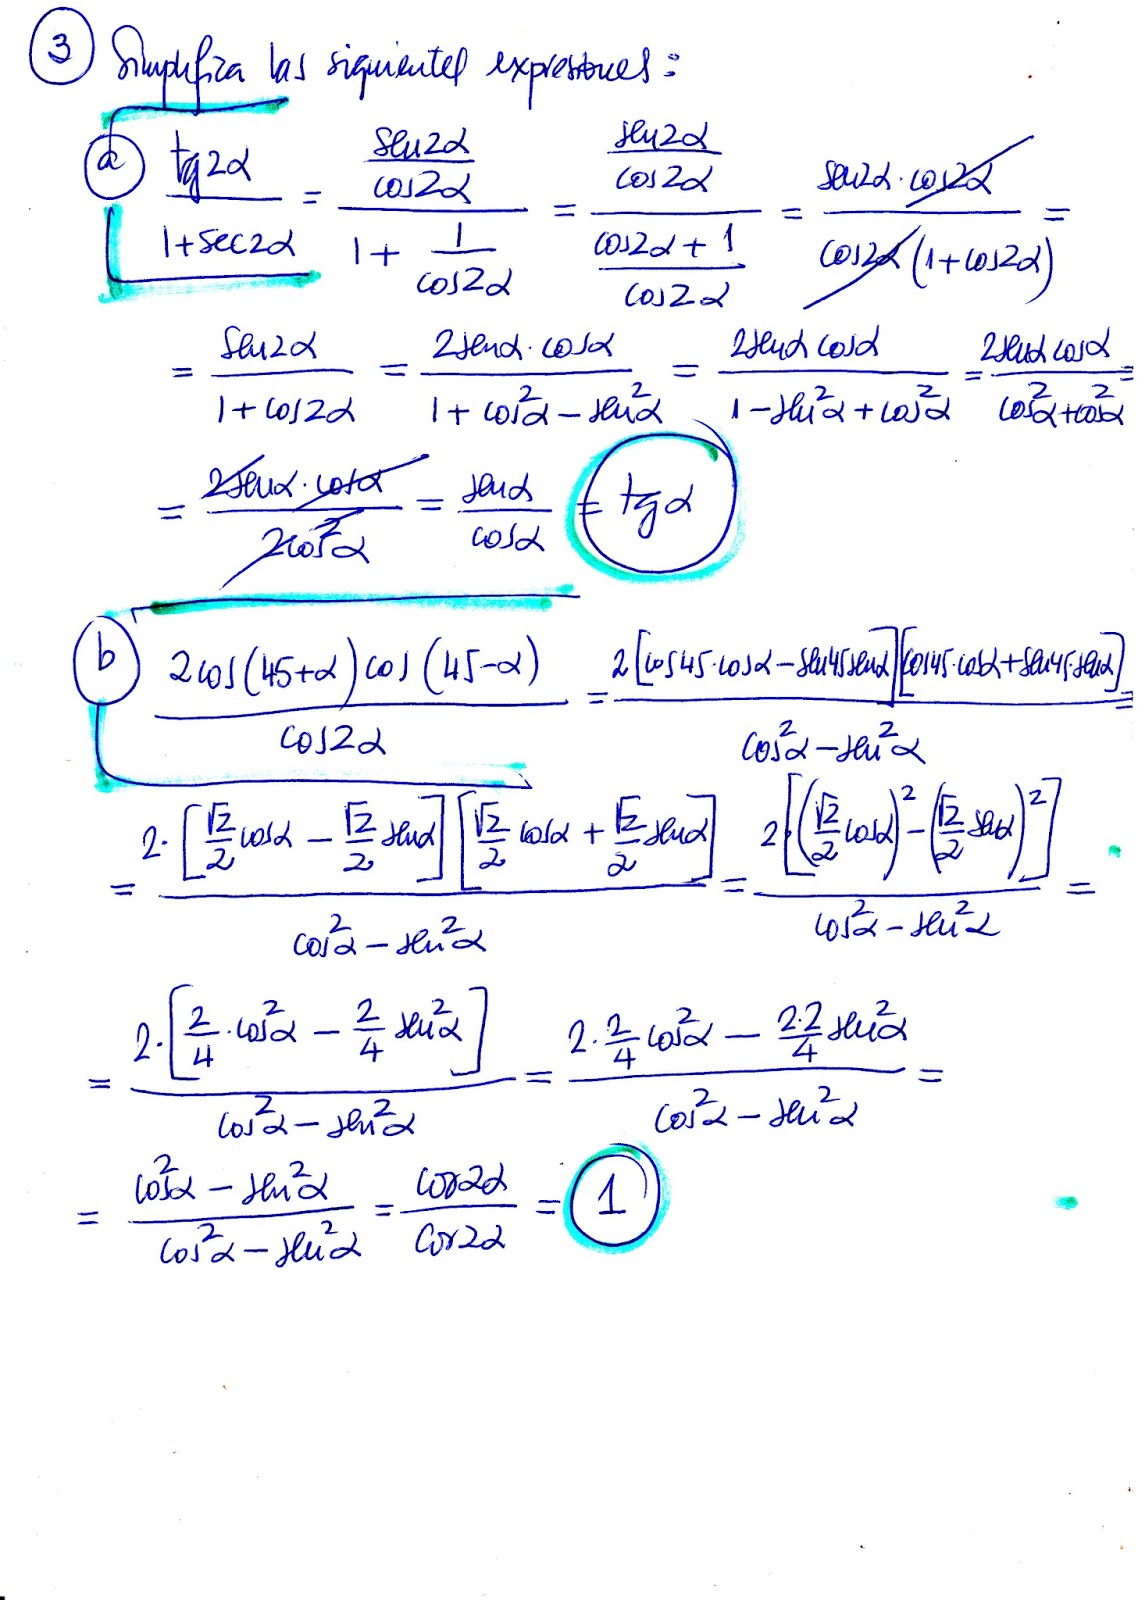 3 Simplifica las siguientes expresiones:
a tg2α / 1+sec2α = (sen2α / cos2α) / (1 + 1 / cos2α) = (sen2α / cos2α) / (cos2α + 1 / cos2α) = sen2α · cos2α / cos2α (1+cos2α) =
= sen2α / 1+cos2α = 2senα · cosα / 1 + cos²α − sen²α = 2senα cosα / 1 − sen²α + cos²α = 2senα cosα / cos²α + cos²α =
= 2senα · cosα / 2cos²α = senα / cosα = tgα
b 2cos(45+α) cos(45−α) / cos2α = 2[cos45·cosα − sen45senα][cos45·cosα + sen45·senα] / cos²α − sen²α =
= 2·[√2/2 cosα − √2/2 senα][√2/2 cosα + √2/2 senα] / cos²α − sen²α = 2[(√2/2 cosα)² − (√2/2 senα)²] / cos²α − sen²α =
= 2·[2/4 · cos²α − 2/4 sen²α] / cos²α − sen²α = 2·2/4 cos²α − 2·2/4 sen²α / cos²α − sen²α =
= cos²α − sen²α / cos²α − sen²α = cos2α / cos2α = 1